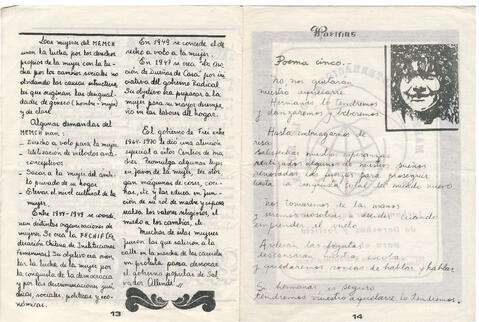 Las mujeres del MEMCH
unen la lucha por los derechos
propios de la mujer con la lu-
cha por los cambios sociales no
olvidando las causas estructura-
les que originan las desigual-
dades de género (hombre-mujer)
y de clase.
Algunas demandas del
MEMCH eran:
- Derecho a voto para la mujer
- Utilización de métodos anti-
conceptivos
- Sacar a la mujer del ámbi-
to privado de su hogar
- Elevar el nivel cultural de la
mujer.
Entre 1944-1949 se
distintas organizaciones de
mujeres. Se crea la FECHIF (Fe-
deración Chilena de Instituciones
Femeninas). Su objetivo era unir
las lucha de la mujer por
la conquista de la democracia
y por las discriminaciones jurí-
dicas, sociales, políticas y eco-
nómicas.
En 1949 se concede el de-
recho a voto a la mujer.
En 1947 se crea "La Aso-
ción de Dueñas de Casa" por ini-
ciativa del gobierno Radical.
Su objetivo era preparar a la
mujer para su mejor desempe-
ño en las labores del hogar.
El gobierno de Frei entre
1964-1970 le dió una atención
especial a los Centros de Ma-
dres. Promulga algunas leyes
en favor de la mujer, les otor-
gan máquinas de coser, coci-
nas, etc y las educa en fun-
ción de su rol de madre y espo-
sa
realza los valores religiosos, el
miedo a los cambios, etc
Muchas de estas mujeres
fueron las que salieron a la
calle en la marcha de las cacerolas
en protesta para derrocar
el gobierno popular de Sal-
vador Allende.
13
Poemas
Poema cinco.-
No nos quitarán
nuestro aquelarre.
Hermanas, lo tendremos
y danzaremos y beberemos
Hasta embriagarnos de
risa
satisfechas nuestras esperanzas
realizados algunos de nuestros sueños
renovadas las fuerzas para proseguir
hasta la conquista total del mundo nuevo
nos tomaremos de las manos
y seremos nosotras decidir cuando
emprender el vuelo
Arderán las fogatas
descansarán nuestras escobas
y quedaremos roncas de hablar y hablar.
Sí hermanas es seguro
tendremos nuestro aquelarre lo tendremos.
14